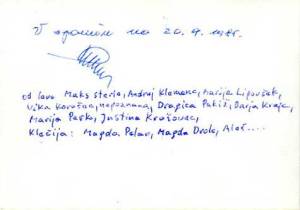 V spomin na 20.9.1985.
od leve Maks Sterle, Andrej Klemenc, Marija Lipovšek,
Vika Korošec, nepoznana, Dragica Pakiž, Darja Kraje,
Marija Pesko, Justina Krašovec,
Klečijo: Magda Pelar, Magda Drole, Aleš....